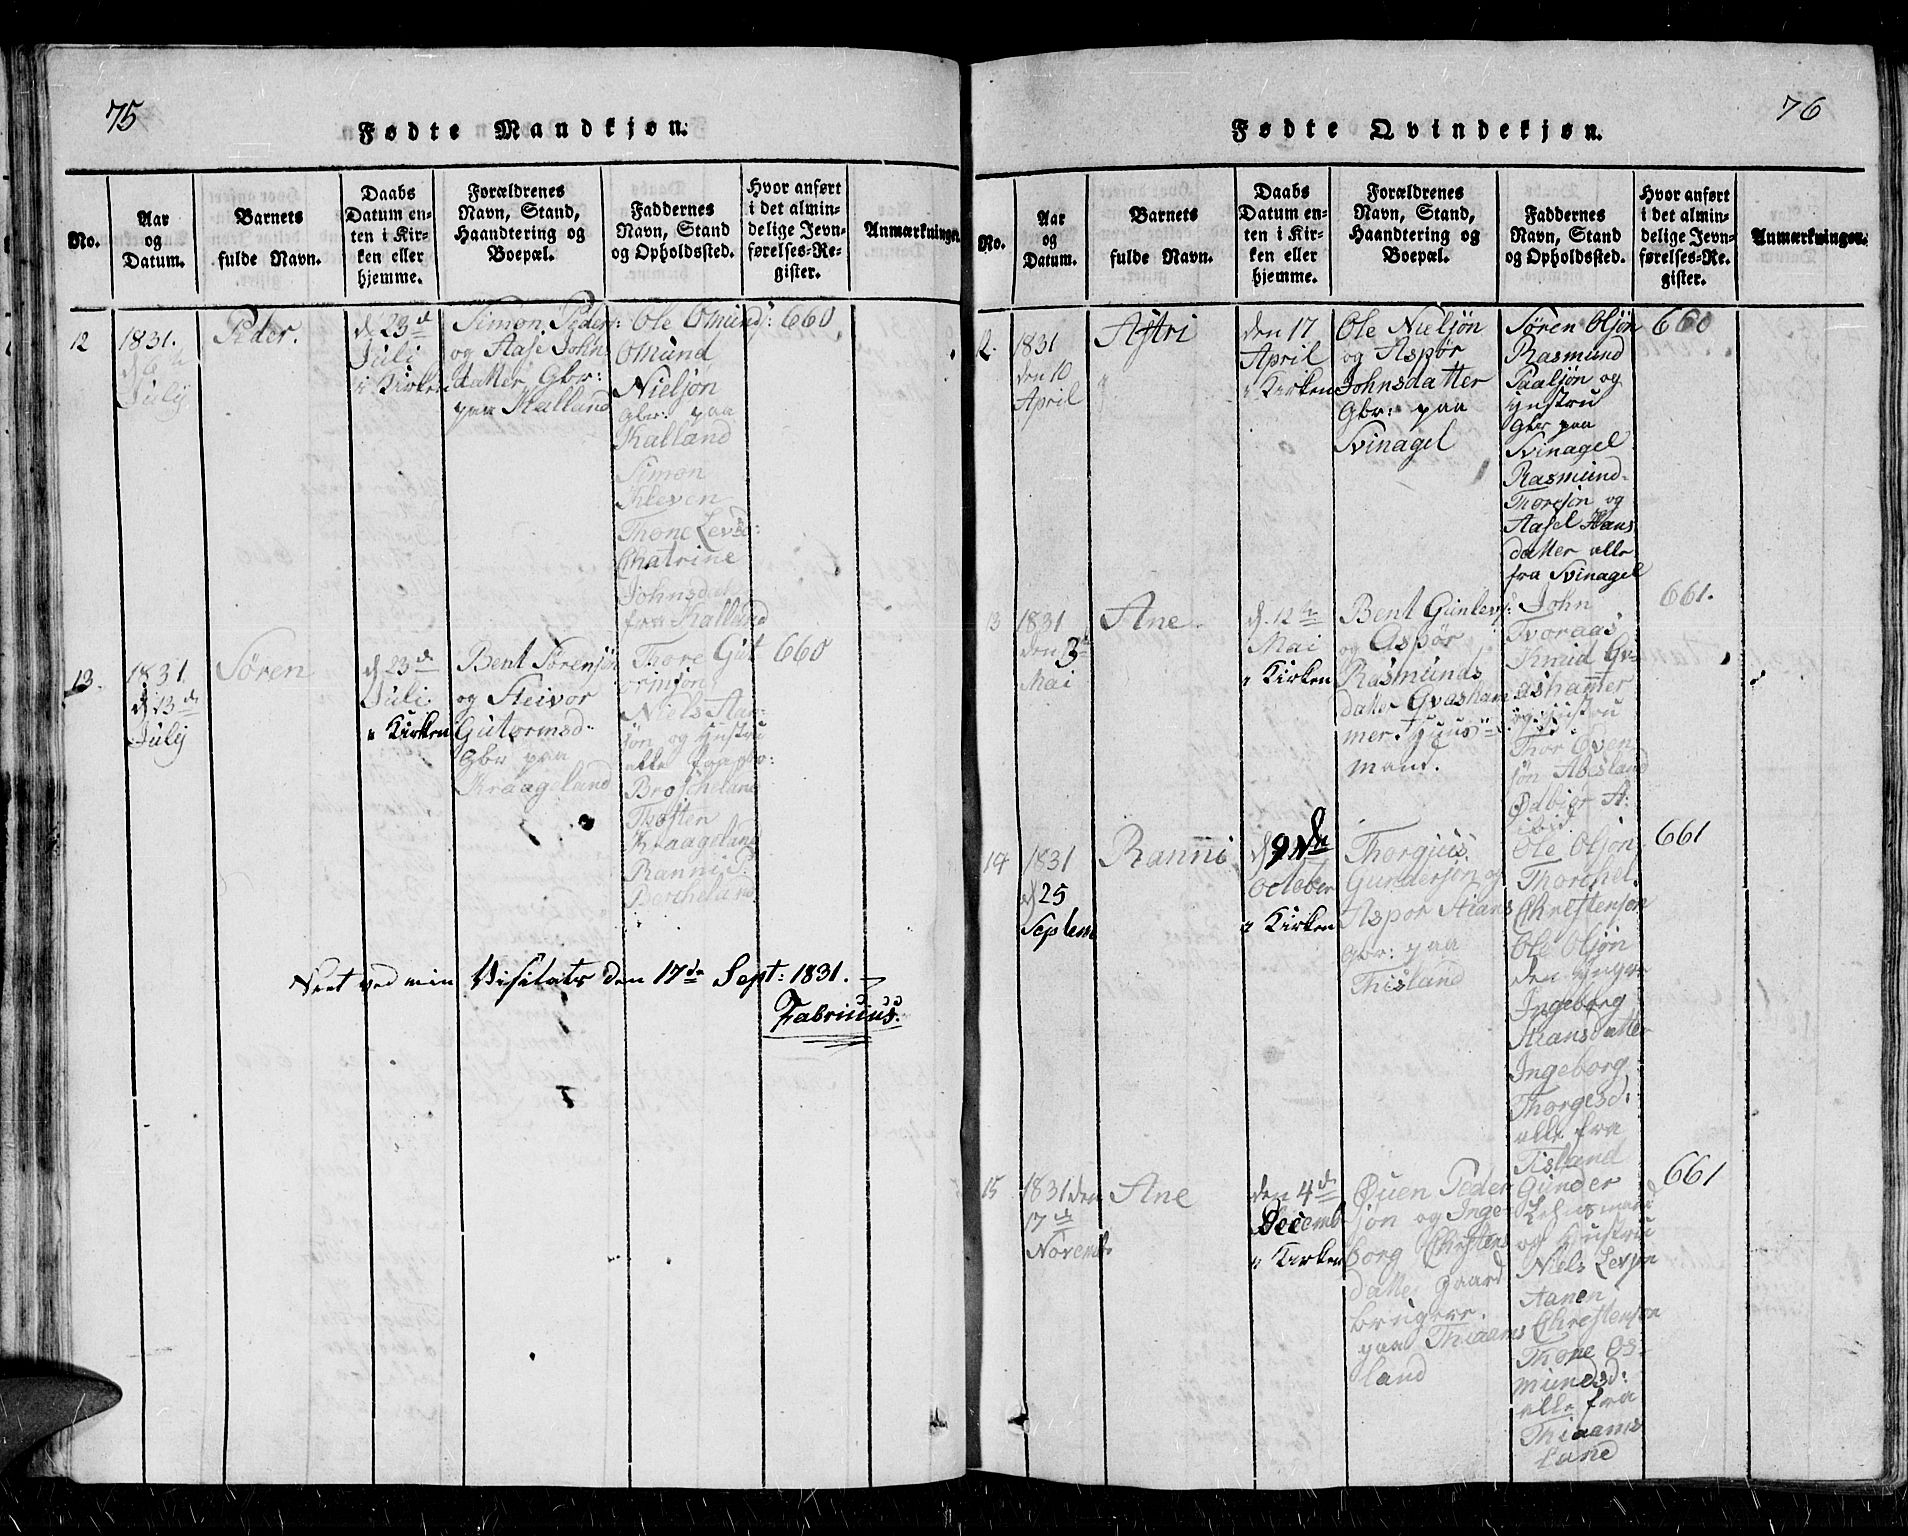 75
Fødte Mandkjøn.
No.
Aar
og
Datum.
Barnets
fulde Navn.
Daabs
Datum en-
ten i Kir-
ken eller
hjemme.
Forældrenes
Navn, Stand,
Haandtering og
Boepæl.
Faddernes
Navn, Stand
og Opholdssted.
Hvor anført
i det almin-
delige Jevn-
førelses-Re-
gister.
Anmærkninger.
12
1831.
July
Peder.
d 23d
Juli
i Kirken
Simon Peders:
og Aase Johns
datter Gbr:
paa Kalland
Ole Omunds:
Omund
Nielsøn
Gbr: paa
Kalland
Simon
Kleven
Thone Levsd:
Chatrine
Johnsdat
fra Kalland
660
13.
1831.
d 13de
July
Søren
d 23de
Juli
i Kirken
Bent Sørensøn
og Steivor
Gutormsd:
Gbr paa
Kraageland
Thore Gut
ormsøn
Niels Aar-
søn og Hustru
alle
Brosheland
Thosten
Kraageland
Ranni P.
Bercheland
660
Seet ved min Visitats den 17de Sept: 1831.
Fabricius.
76
Fødte Qvindekjøn.
No.
Aar
og
Datum.
Barnets
fulde Navn.
Daabs
Datum en-
ten i Kir-
ken eller
hjemme.
Forældrenes
Navn, Stand,
Haandtering og
Boepæl.
Faddernes
Navn, Stand
og Opholdssted.
Hvor anført
i det almin-
delige Jevn-
førelses-Re-
gister.
Anmærkninger.
12.
1831
den 10
April
Astri
den 17
April
i Kirken
Ole Nielsøn
og Aspør
Johnsdatter
Gbr: paa
Svinagel
Søren Olsøn
Rasmund
Paalsøn og
Hustru
Gbr paa
Svinagel
Rasmund
Thorsøn og
Aasel Hans
datter alle
fra Svinagel
660
13
1831
den 3de
Mai
Ane
d. 12te
Mai
i Kirken
Bent Gunlevs:
og Aspør
Rasmunds
datter Gvasham
mer Huus-
mand.
John
Tvoraas
Smid Gv-
ashammer
og Hustru
Thor Oven
søn Abesland
Ødbiør A:
ibid
661.
14
1831
d 25
Septem
Ranni
d 9de
October
i Kirken
Thorgius
Gundersøn og
Aspor Hans
Gbr: paa
Thisland
Ole Olsøn
Thorchel
Christensøn
Ole Olsøn
den Ynger
Ingeborg
Hansdatter
Ingeborg
Thorgesd:
alle fra
Tisland
661
15
1831 den
17de
Novemb
Ane
den 4de
Decemb
i Kirken
Øuen Peder
søn og Inge-
borg Christens
datter gaard
bruger
paa Thiams
land
Gunder
Lensmand
og Hustru
Niels Levsøn
Aanen
Christensøn
Thone Os-
mundsd:
alle fra
Thiaams
land
661